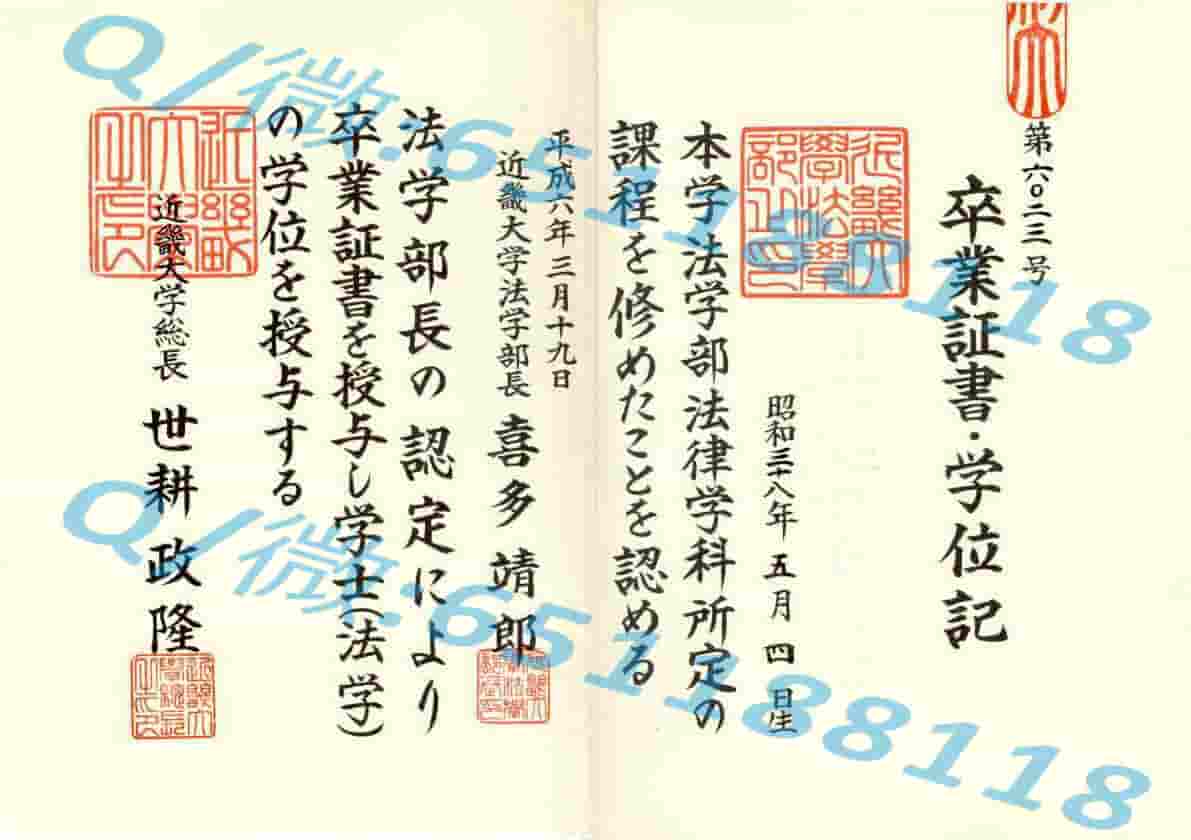 第六〇二三号
卒業証書・学位記
昭和三十八年 五月 四 日生
本学法学部法律学科所定の
課程を修めたことを認める
平成六年三月十九日
近畿大学法学部長 喜多靖郎
法学部長の認定により
卒業証書を授与し学士(法学)
の学位を授与する
近畿大学総長 世耕政隆
Q/微:651188118
Q/微:651188118